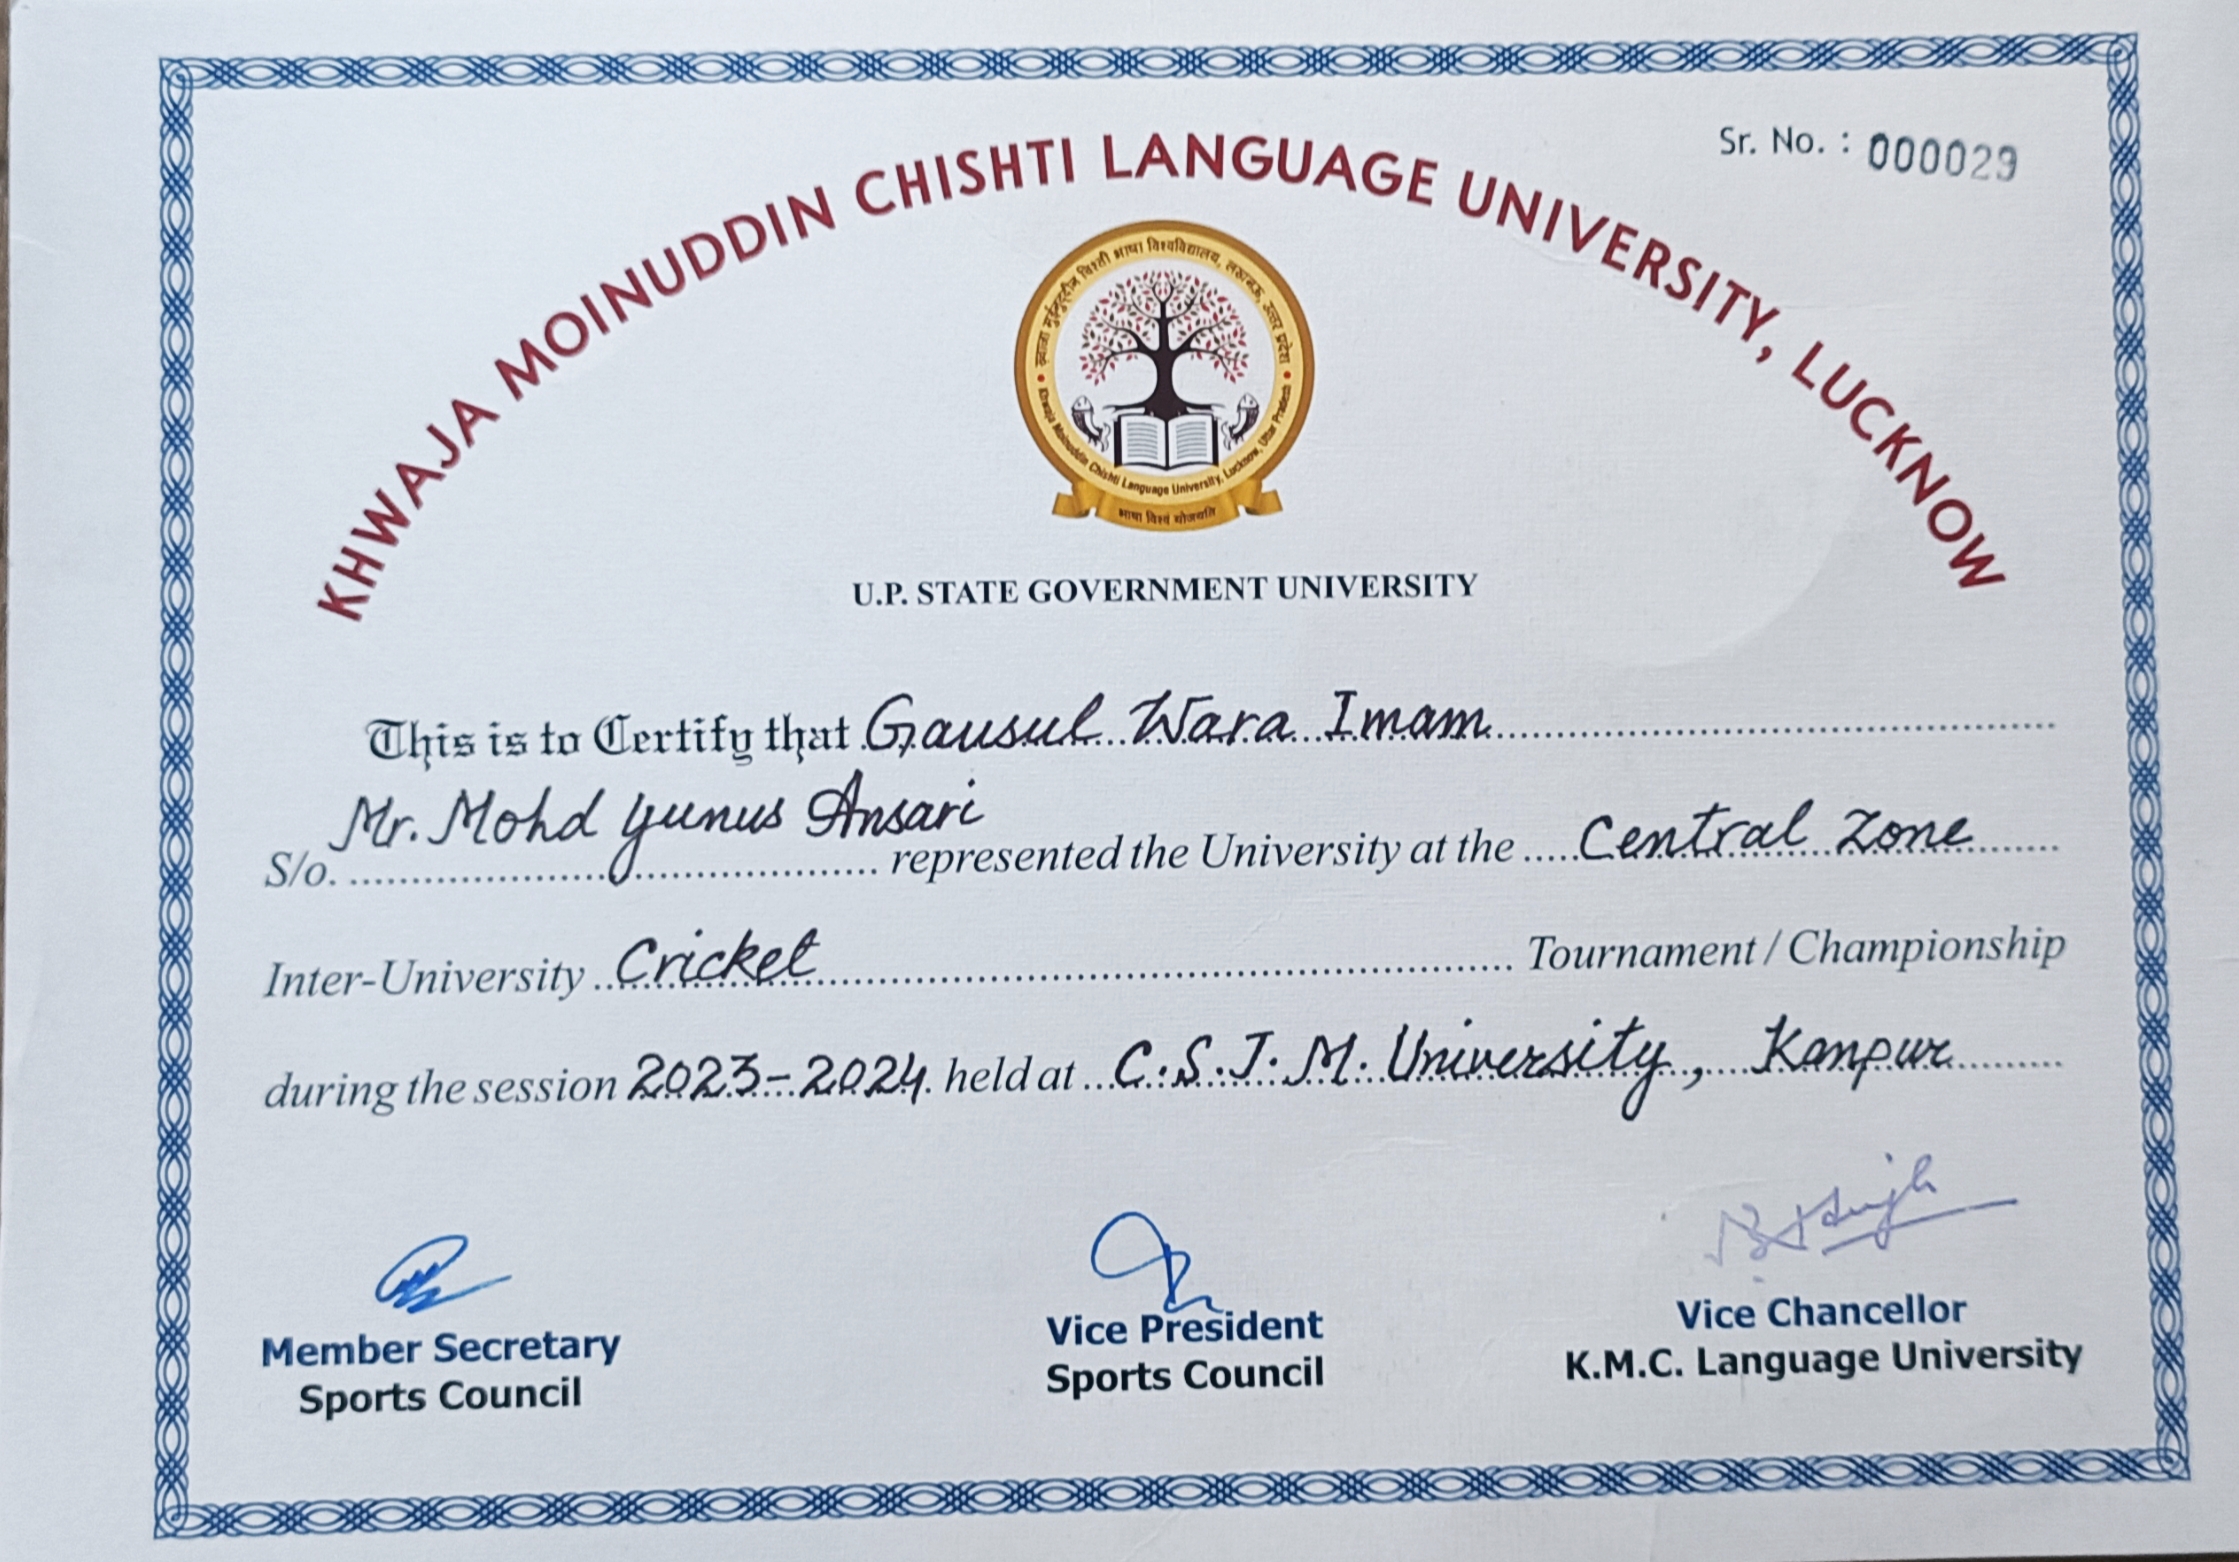 Sr. No. : 000029
KHWAJA MOINUDDIN CHISHTI LANGUAGE UNIVERSITY, LUCKNOW
ख्वाजा मुईनुद्दीन चिश्ती भाषा विश्वविद्यालय, लखनऊ, उत्तर प्रदेश
Khwaja Moinuddin Chishti Language University, Lucknow, Uttar Pradesh
भाषा विश्वं योजयति
U.P. STATE GOVERNMENT UNIVERSITY
This is to Certify that Gausul Wara Imam
S/o. Mr. Mohd Yunus Ansari represented the University at the Central Zone
Inter-University Cricket Tournament / Championship
during the session 2023-2024 held at C.S.J.M. University, Kanpur
Member Secretary
Sports Council
Vice President
Sports Council
Vice Chancellor
K.M.C. Language University